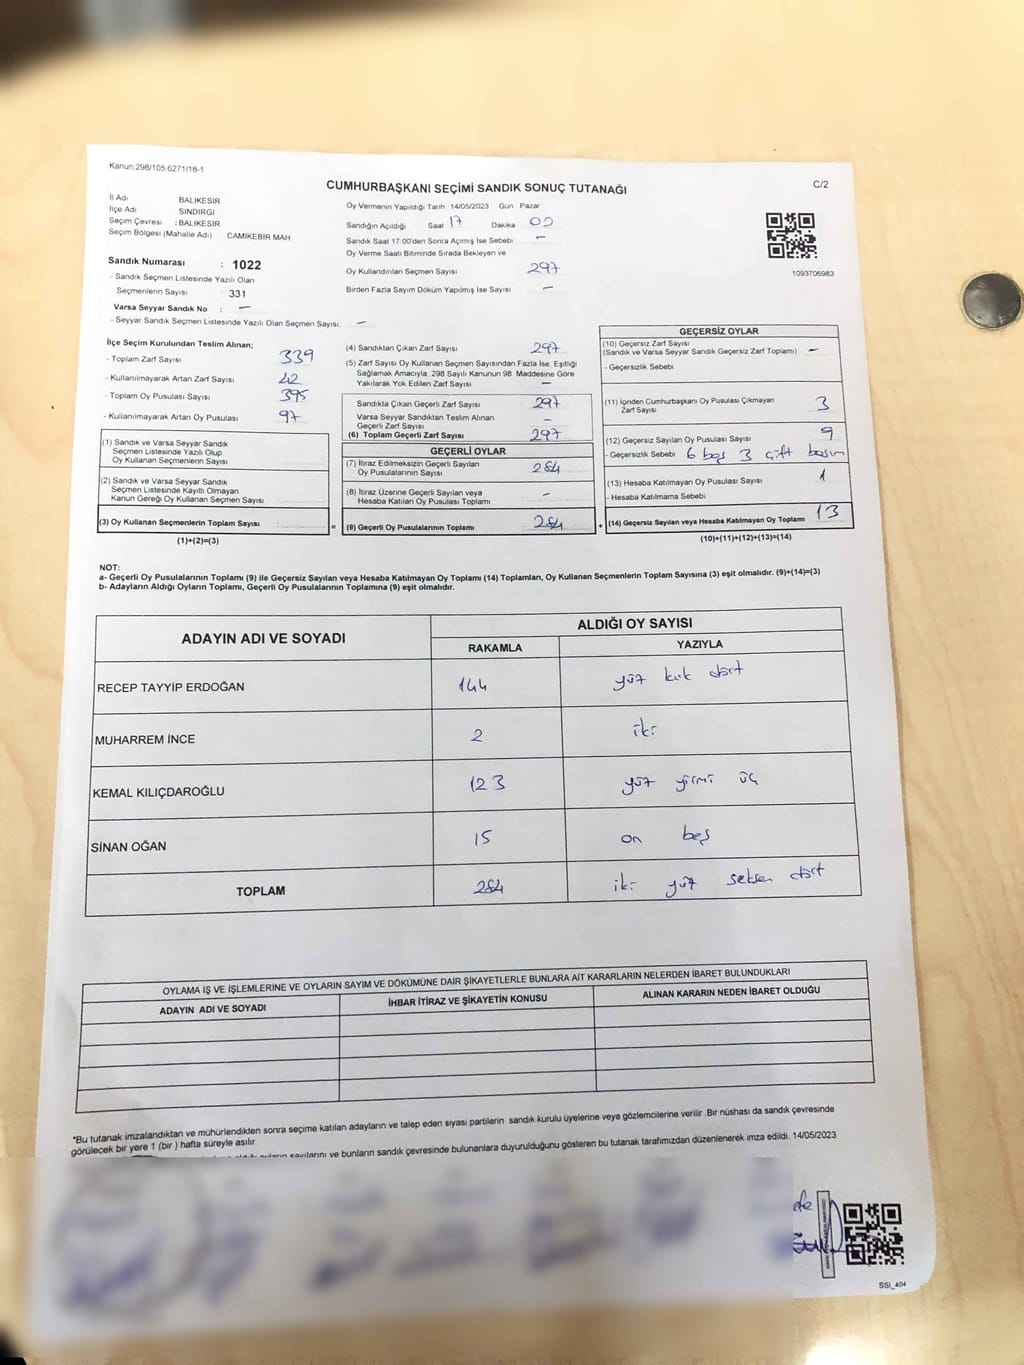 Kanun.298/105.6271/18-1
CUMHURBAŞKANI SEÇİMİ SANDIK SONUÇ TUTANAĞI
C/2
İl Adı BALIKESİR
İlçe Adı SINDIRGI
Seçim Çevresi : BALIKESİR
Seçim Bölgesi (Mahalle Adı) CAMİKEBİR MAH
Sandık Numarası : 1022
- Sandık Seçmen Listesinde Yazılı Olan
Seçmenlerin Sayısı : 331
Varsa Seyyar Sandık No : -
- Seyyar Sandık Seçmen Listesinde Yazılı Olan Seçmen Sayısı : -
Oy Vermenin Yapıldığı Tarih 14/05/2023 Gün Pazar
Sandığın Açıldığı Saat 17 Dakika 00
Sandık Saat 17:00'den Sonra Açımış İse Sebebi -
Oy Verme Saati Bitiminde Sırada Bekleyen ve
Oy Kullandırılan Seçmen Sayısı 297
Birden Fazla Sayım Döküm Yapılmış İse Sayısı -
1093706983
İlçe Seçim Kurulundan Teslim Alınan;
- Toplam Zarf Sayısı 339
- Kullanılmayarak Artan Zarf Sayısı 42
- Toplam Oy Pusulası Sayısı 395
- Kullanılmayarak Artan Oy Pusulası 97
(1) Sandık ve Varsa Seyyar Sandık
Seçmen Listesinde Yazılı Olup
Oy Kullanan Seçmenlerin Sayısı
(2) Sandık ve Varsa Seyyar Sandık
Seçmen Listesinde Kayıtlı Olmayan
Kanun Gereği Oy Kullanan Seçmen Sayısı
(3) Oy Kullanan Seçmenlerin Toplam Sayısı :
(1)+(2)=(3)
(4) Sandıktan Çıkan Zarf Sayısı 297
(5) Zarf Sayısı Oy Kullanan Seçmen Sayısından Fazla İse, Eşitliği
Sağlamak Amacıyla, 298 Sayılı Kanunun 98. Maddesine Göre
Yakılarak Yok Edilen Zarf Sayısı -
Sandıkta Çıkan Geçerli Zarf Sayısı 297
Varsa Seyyar Sandıktan Teslim Alınan
Geçerli Zarf Sayısı -
(6) Toplam Geçerli Zarf Sayısı 297
GEÇERLİ OYLAR
(7) İtiraz Edilmeksizin Geçerli Sayılan
Oy Pusulalarının Sayısı 284
(8) İtiraz Üzerine Geçerli Sayılan veya
Hesaba Katılan Oy Pusulası Toplamı -
= (9) Geçerli Oy Pusulalarının Toplamı : 284 +
GEÇERSİZ OYLAR
(10) Geçersiz Zarf Sayısı
(Sandık ve Varsa Seyyar Sandık Geçersiz Zarf Toplamı) -
- Geçersizlik Sebebi
(11) İçinden Cumhurbaşkanı Oy Pusulası Çıkmayan
Zarf Sayısı 3
(12) Geçersiz Sayılan Oy Pusulası Sayısı 9
- Geçersizlik Sebebi 6 boş 3 çift basım
(13) Hesaba Katılmayan Oy Pusulası Sayısı 1
- Hesaba Katılmama Sebebi
(14) Geçersiz Sayılan veya Hesaba Katılmayan Oy Toplamı 13
(10)+(11)+(12)+(13)=(14)
NOT:
a- Geçerli Oy Pusulalarının Toplamı (9) ile Geçersiz Sayılan veya Hesaba Katılmayan Oy Toplamı (14) Toplamları, Oy Kullanan Seçmenlerin Toplam Sayısına (3) eşit olmalıdır. (9)+(14)=(3)
b- Adayların Aldığı Oyların Toplamı, Geçerli Oy Pusulalarının Toplamına (9) eşit olmalıdır.
ADAYIN ADI VE SOYADI
ALDIĞI OY SAYISI
RAKAMLA YAZIYLA
RECEP TAYYİP ERDOĞAN 144 yüz kırk dört
MUHARREM İNCE 2 iki
KEMAL KILIÇDAROĞLU 123 yüz yirmi üç
SİNAN OĞAN 15 on beş
TOPLAM 284 iki yüz seksen dört
OYLAMA İŞ VE İŞLEMLERİNE VE OYLARIN SAYIM VE DÖKÜMÜNE DAİR ŞİKAYETLERLE BUNLARA AİT KARARLARIN NELERDEN İBARET BULUNDUKLARI
ADAYIN ADI VE SOYADI
İHBAR İTİRAZ VE ŞİKAYETİN KONUSU
ALINAN KARARIN NEDEN İBARET OLDUĞU
*Bu tutanak imzalandıktan ve mühürlendikten sonra seçime katılan adayların ve talep eden siyasi partilerin sandık kurulu üyelerine veya gözlemcilerine verilir .Bir nüshası da sandık çevresinde
görülecek bir yere 1 (bir ) hafta süreyle asılır
oyların sayılarını ve bunların sandık çevresinde bulunanlara duyurulduğunu gösteren bu tutanak tarafımızdan düzenlenerek imza edildi. 14/05/2023
SSI_404